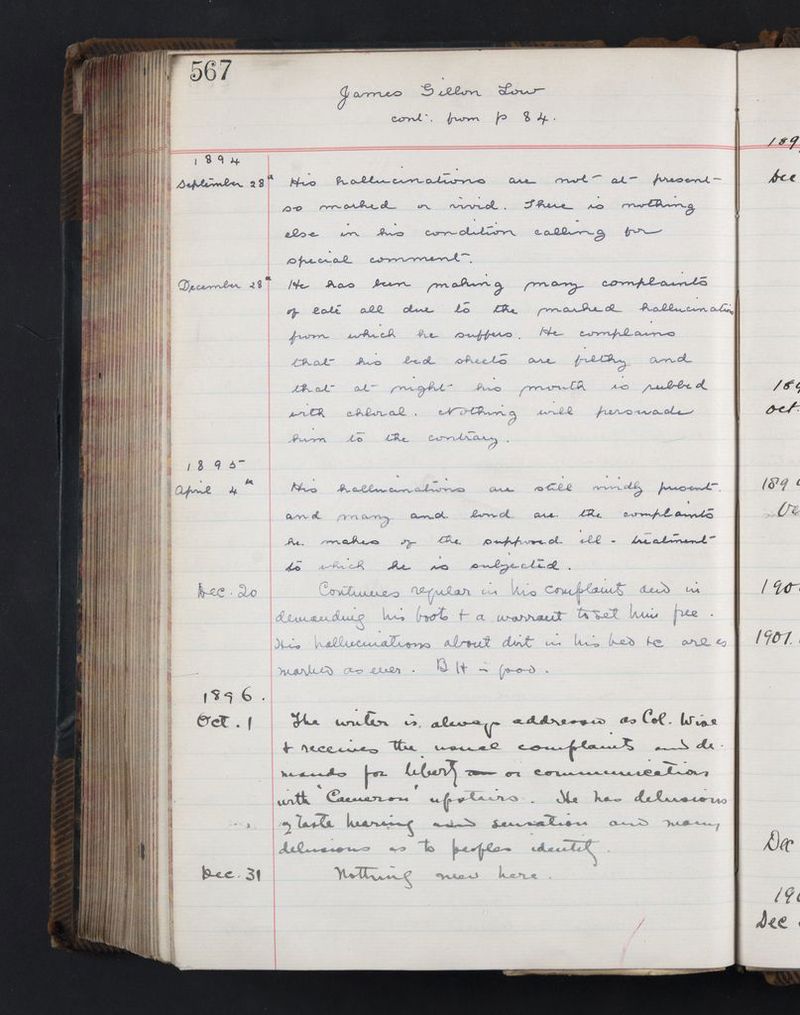 567
James Gillon Low
cont. from p 84.
1894
September 28th His hallucinations are not at present
so marked or vivid. There is nothing
else in his condition calling for
special comment.
December 28th He has been making many complaints
of late all due to the marked hallucinations
from which he suffers. He complains
that his bed sheets are filthy and
that at night his mouth is rubbed
with chloral. Nothing will persuade
him to the contrary.
1895
April 4th His hallucinations are still vividly present.
and many and loud are the complaints
he makes of the supposed ill-treatment
to which he is subjected.
Dec. 20 Continues regular in his complaints and in
demanding his boots & a warrant to set him free.
His hallucinations about dirt in his bed &c are as
marked as ever. B H is good.
1896.
Oct. 1 The writer is always addressed as Col. Wise
& receives the usual complaints and de-
mands for liberty or communication
with "Cameron" upstairs. He has delusions
of taste hearing and sensation and many
delusions as to peoples identity.
Dec. 31 Nothing new here.
189
Dec
189
Oct.
189
190
1901.
Dec
190
Dec